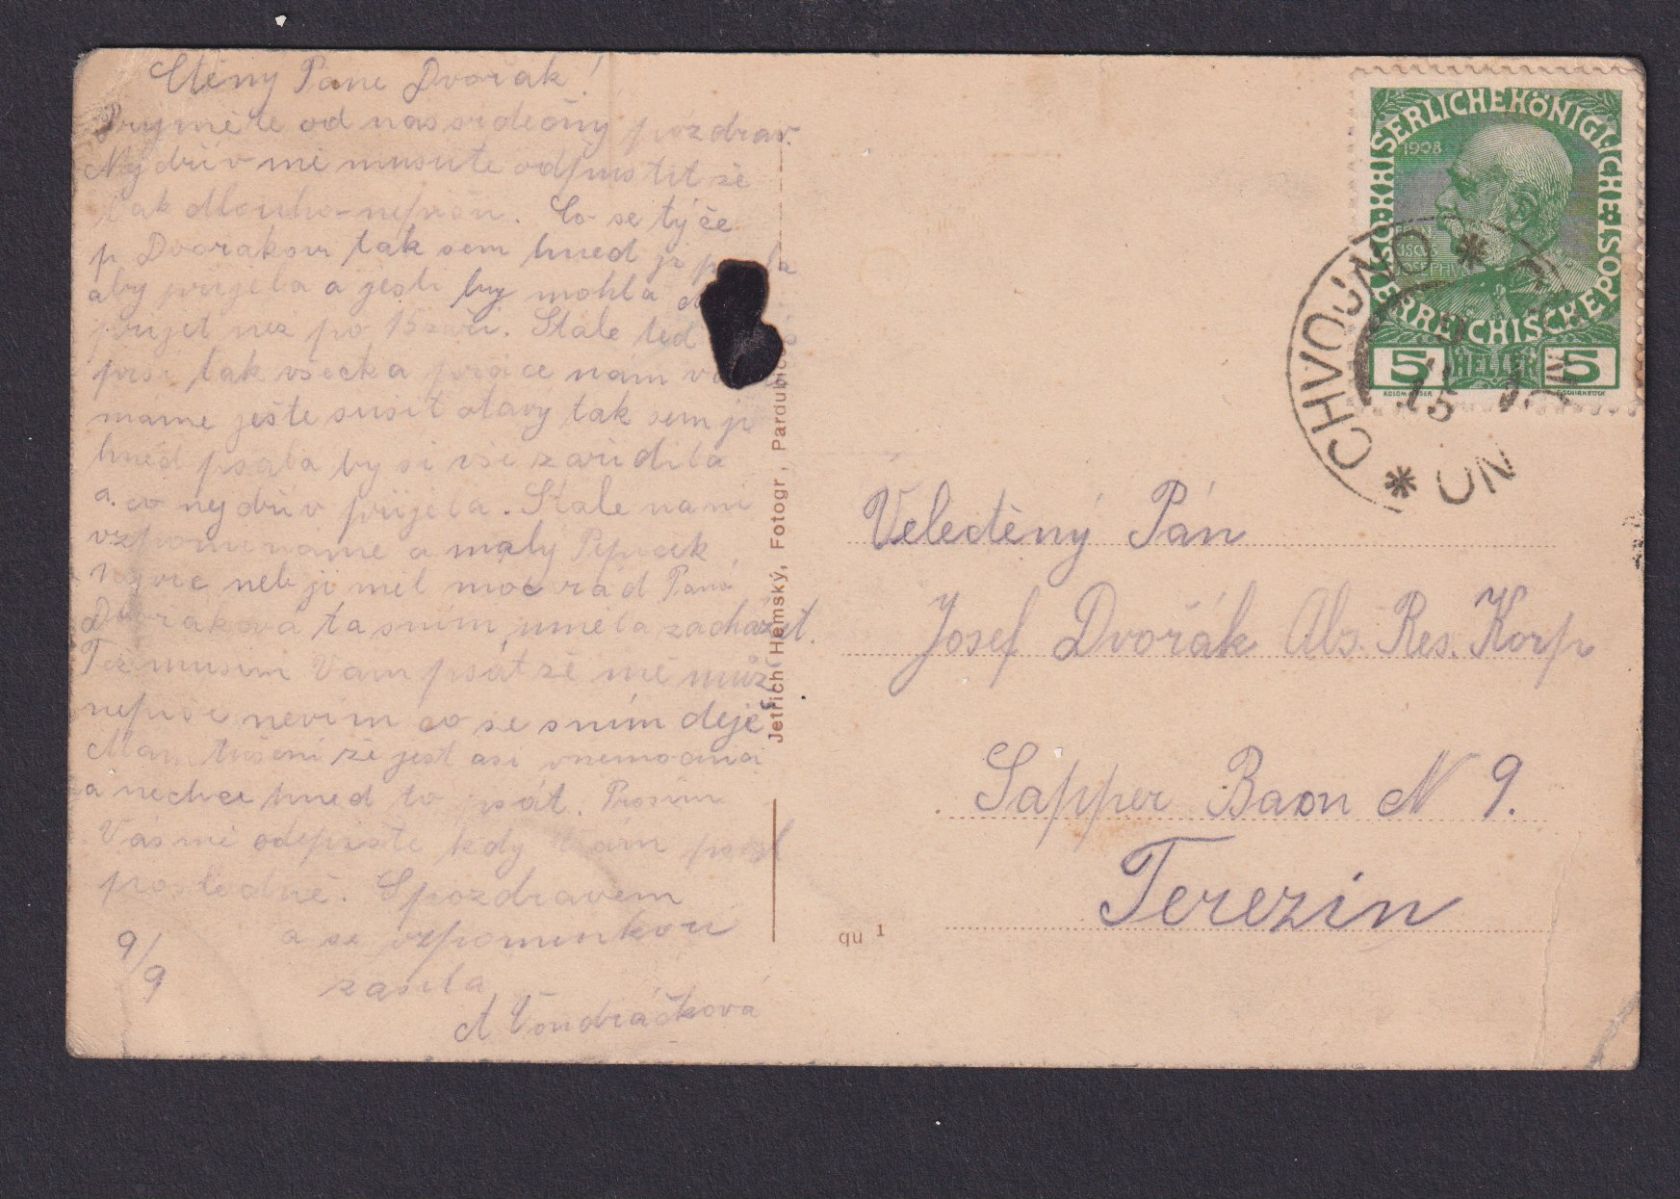 Ctěny Pane Dvořak!
Pryměte od nas srdečny pozdrav.
Nejdřiv mě musite odpustit že
tak dlouho nepišu. Co se týče
p Dvořakovi tak sem hned ji
aby prijela a jesli by mohla
prijet než po 15 zaři. Stale ted
prši tak všecka prace nám
máme ješte sušit otavy tak sem ji
hned psala by si vše zaridila
a co nejdřiv prijela. Stale nami
vzpominame a maly Pepiček
nejvic neb ji měl moc rád Paní
Dvořaková ta sním uměla zacházet.
Též musim Vam psát že mě můž
nepiše nevím co se sním deje
Mam tušeni že jest asi vnemocnici
a nechce hned to psát. Prosim
Vás mě odepište kdy Vám psal
posledně. Spozdravem
a se vzpominkou
zasila
A Vondráčková
9/9
Jetřich Hemský, Fotogr, Pardubice
qu 1
KAISERLICHE KÖNIGLICHE ÖSTERREICHISCHE POST
1908
5 HELLER 5
CHVOJNO
Veleděný Pán
Josef Dvořák Abs. Res. Korp
Sapper Baon N 9.
Terezin